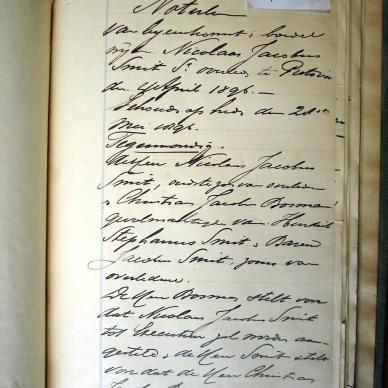 Notulen
van byeenkomst i/z boedel
wijlen Nicolaas Jacobus
Smit Sr. overleden te Pretoria
den 4 April 1896.—
Gehouden op heden den 20sten
Mei 1896.
Tegenwoordig.
De Heer Nicolaas Jacobus
Smit, oudste zoon van overledene
& Christian Jacob Bosman
gevolmachtigde van Hendrik
Stephanus Smit & Barend
Jacobus Smit, zoons van
overledene.
De Heer Bosman stelt voor
dat Nicolaas Jacobus Smit
tot Executeur zal worden aan-
gesteld, & de Heer Smit stelt
voor dat de Heer Christian